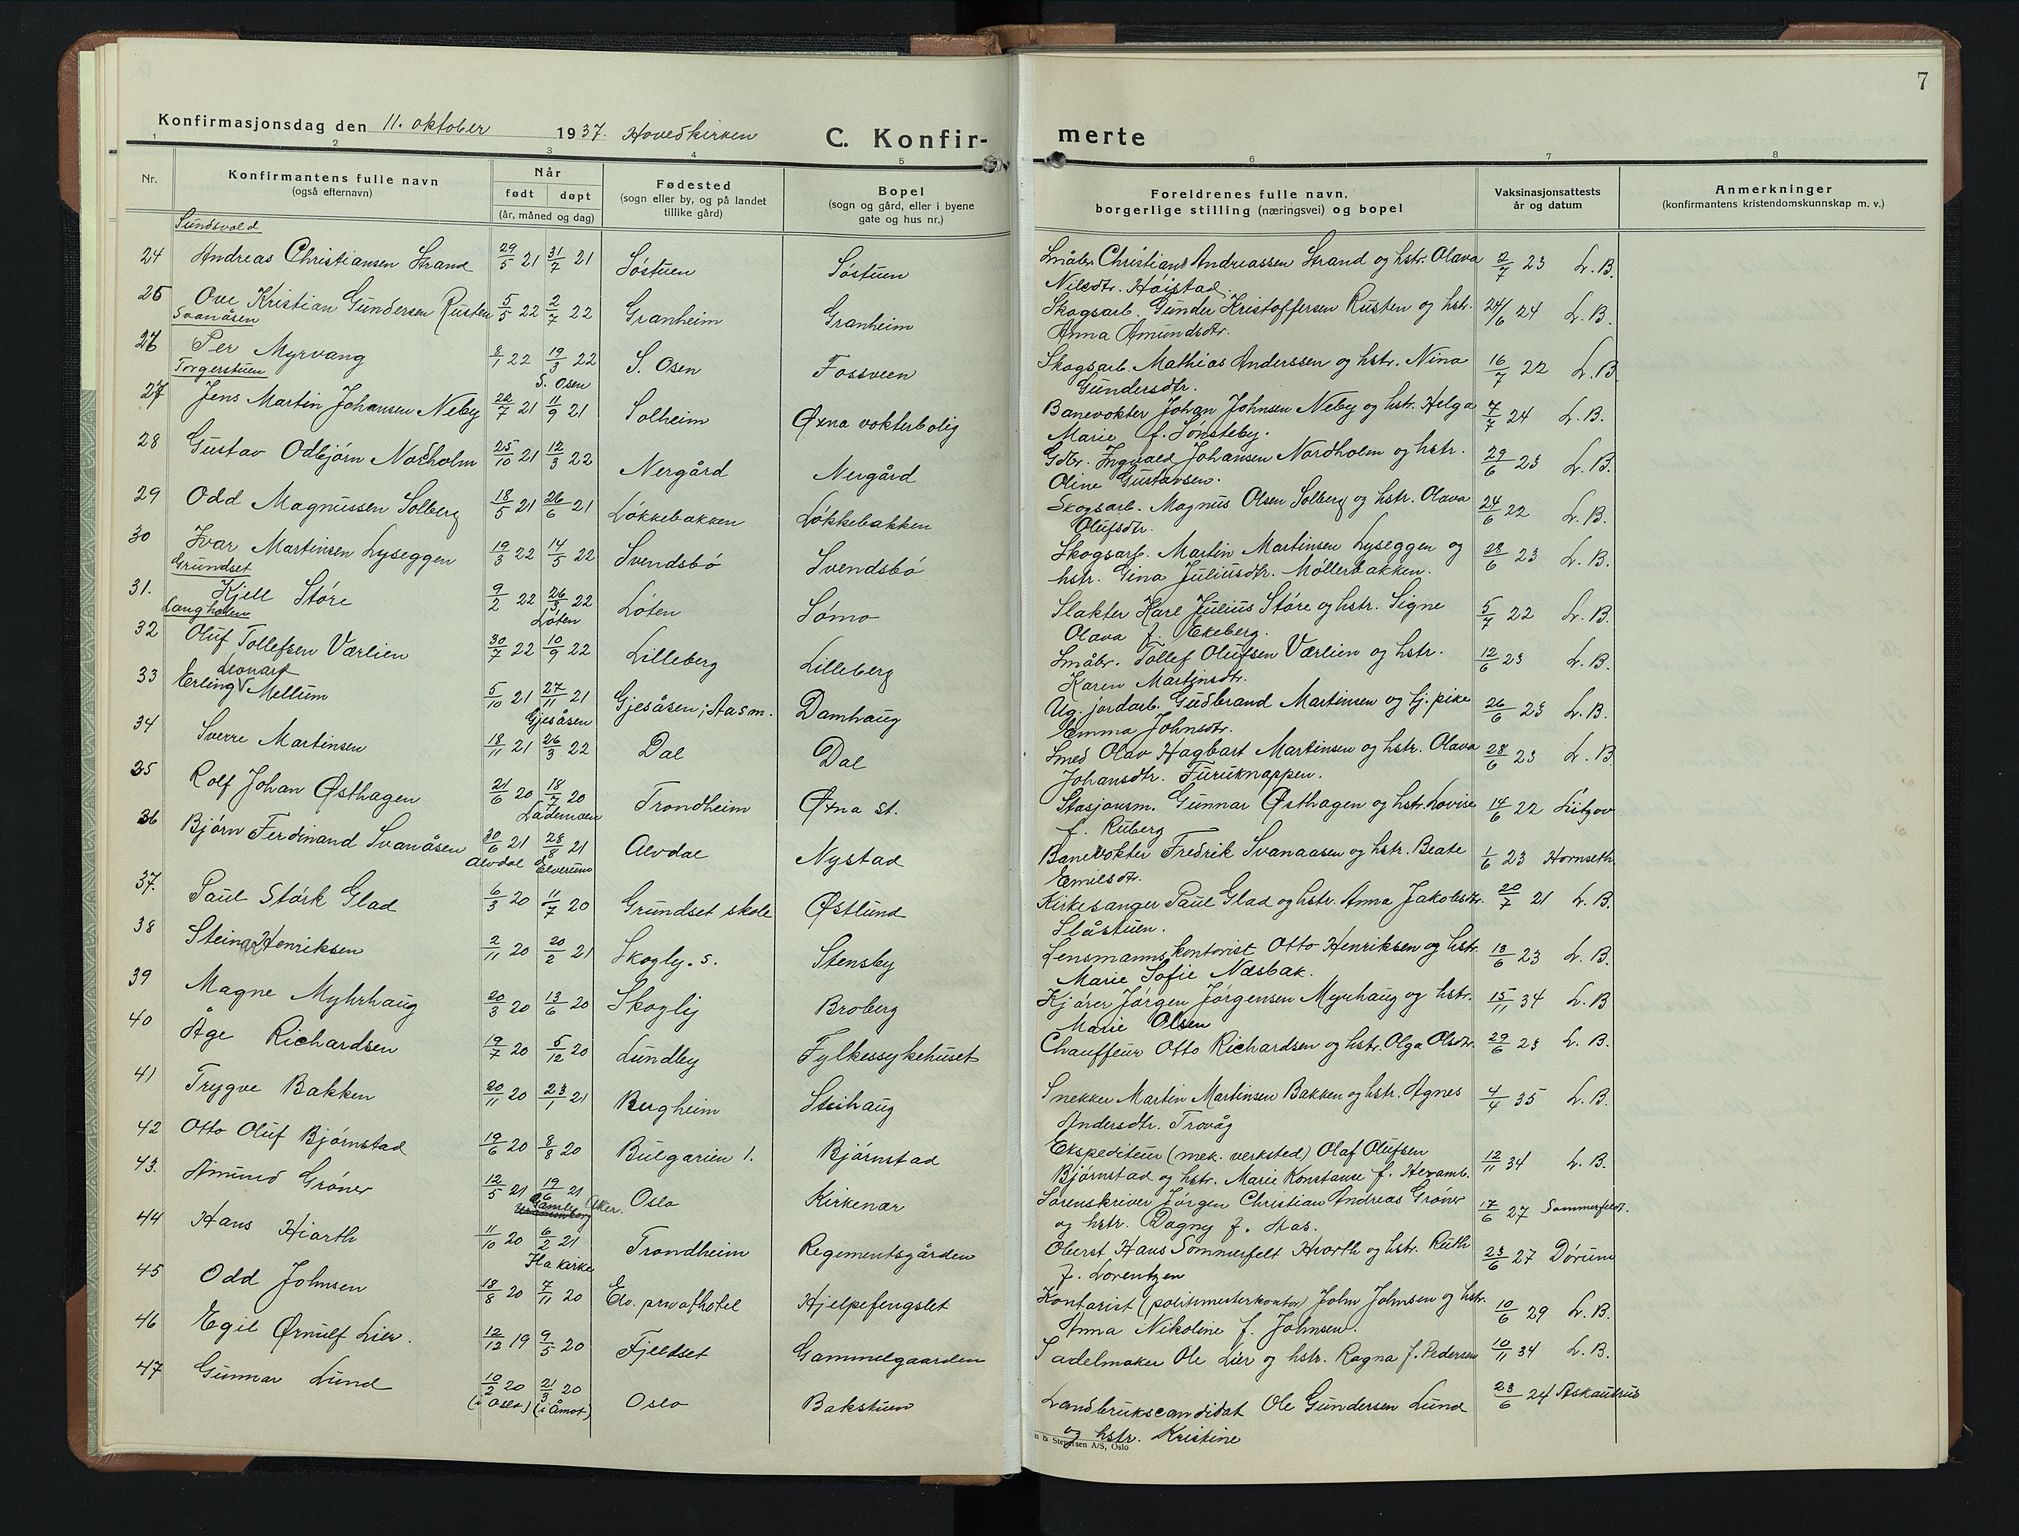 7
Konfirmasjonsdag den 11. oktober 1937. Hovedkirken C. Konfir-merte
1 2 3 4 5 6 7 8
Nr. Konfirmantens fulle navn (også efternavn) Når født døpt (år, måned og dag) Fødested (sogn eller by, og på landet tillike gård) Bopel (sogn og gård, eller i byene gate og hus nr.) Foreldrenes fulle navn, borgerlige stilling (næringsvei) og bopel Vaksinasjonsattests år og datum Anmerkninger (konfirmantens kristendomskunnskap m. v.)
Sundsvold
24 Andreas Christiansen Strand 29/5 21 31/7 21 Søstuen Søstuen Småbr. Christian Andreassen Strand og hstr. Olava 2/7 23 L. B.
Nilsdtr. Høistad.
25 Ove Kristian Gundersen Rusten 5/5 22 2/7 22 Granheim Granheim Skogsarb. Gunder Kristoffersen Rusten og hstr. 24/6 24 L. B.
Svanåsen Anna Amundsdtr.
26 Per Myrvang 8/1 22 19/3 22 S. Osen Fossveen Skogsarb. Mathias Anderssen og hstr. Nina 16/7 22 L. B.
Torgerstuen S. Osen Gundersdtr.
27 Jens Martin Johansen Neby 22/7 21 11/9 21 Solheim Øxna vokterbolig Banevokter Johan Johnsen Neby og hstr. Helga 7/7 24 L. B.
Marie f. Sønsteby.
28 Gustav Odbjørn Nordholm 25/10 21 12/3 22 Nergård Nergård Gdbr. Ingvald Johansen Nordholm og hstr. 29/6 23 L. B.
Oline Gustavsen.
29 Odd Magnussen Solberg 18/5 21 26/6 21 Løkkebakken Løkkebakken Skogsarb. Magnus Olsen Solberg og hstr. Olava 24/6 22 L. B.
Olufsdtr.
30 Ivar Martinsen Lyseggen 19/3 22 14/5 22 Svendsbø Svendsbø Skogsarb. Martin Martinsen Lyseggen og 28/6 23 L. B.
Grundset hstr. Gina Juliusdtr. Møllerbakken.
31. Kjell Støre 9/2 22 26/3 22 Løten Sømo Slakter Karl Julius Støre og hstr. Signe 5/7 22 L. B.
Langholen Løten Olava f. Ekeberg.
32 Oluf Tollefsen Værlien 30/7 22 10/9 22 Lilleberg Lilleberg Småbr. Tollef Olufsen Værlien og hstr. 12/6 23 L. B.
Leonart Karen Martinsdtr.
33 Erling Mellum 5/10 21 27/11 21 Gjesåsen i Aasm. Damhaug Ug. jordarb. Gudbrand Martinsen og tj. pike 26/6 23 L. B.
Gjesåsen Emma Johnsdtr.
34 Sverre Martinsen 18/11 21 26/3 22 Dal Dal Smed Olav Hagbart Martinsen og hstr. Olava 28/6 23 L. B.
Johansdtr. Furuknappen.
35 Rolf Johan Østhagen 21/6 20 18/7 20 Trondheim Øxna st. Stasjonsm. Gunnar Østhagen og hstr. Lovise 14/6 22 Lützov
Lademoen f. Ruberg
36 Bjørn Ferdinand Svanåsen 30/6 21 28/8 21 Alvdal Nystad Banevokter Fredrik Svanaasen og hstr. Beate 1/6 23 Hornseth
Alvdal Elverum Emilsdtr.
37. Paul Størk Glad 6/3 20 11/7 20 Grundset skole Østlund Kirkesanger Paul Glad og hstr. Anna Jakobsdtr. 20/7 21 L. B.
Slåstuen.
38 Steinar Henriksen 2/11 20 20/2 21 Skogly. s. Stensby Lensmannskontorist Otto Henriksen og hstr. 13/6 23 L. B.
Marie Sofie Næsbak.
39 Magne Myhrhaug 20/3 20 13/6 20 Skoglij Broberg Kjører Jørgen Jørgensen Myrhaug og hstr. 15/11 34 L. B
Marie Olsen
40 Åge Richardsen 19/7 20 5/12 20 Lundby Fylkessykehuset Chauffeur Otto Richardsen og hstr. Olga Olsdtr. 29/6 23 L. B.
41 Trygve Bakken 20/11 20 23/1 21 Bergheim Steihaug Snekker Martin Martinsen Bakken og hstr. Agnes 4/4 35 L. B.
Andersdtr. Trovåg
42 Otto Oluf Bjørnstad 19/6 20 8/8 20 Bulgarien 1. Bjørnstad Ekspediteur (mek. verksted) Olaf Olufsen 12/11 34 L. B.
Bjørnstad og hstr. Marie Konstanse f. Hexamb.
43. Amund Grøner 12/5 21 19/6 21 Oslo Kirkenær Sorenskriver Jørgen Christian Andreas Grøner 17/6 27 Sommerfeldt.
Gamle Aker. og hstr. Dagny f. Aas.
44 Hans Hiorth 11/10 20 6/2 21 Trondheim Regementsgården Oberst Hans Sommerfelt Hiorth og hstr. Ruth 23/6 27 Dørum
Ila kirke f. Lorentzen
45 Odd Johnsen 18/8 20 7/11 20 Elv. privathotel Hjelpefengslet Kontorist (politimesterkontor) John Johnsen og hstr. 10/6 29 L. B.
Anna Nikoline f. Johnsen.
46 Egil Ørnulf Lier. 12/12 19 9/5 20 Fjeldset Gammelgaarden Sadelmaker Ole Lier og hstr. Ragna f. Pedersen 10/11 34 L. B.
47 Gunnar Lund 10/2 20 21/3 20 Oslo Bakstuen Landbrukscandidat Ole Gundersen Lund 23/6 24 Askautrus
(i Oslo) (i Åmot) og hstr. Kristine
n & Stenersen A/S, Oslo